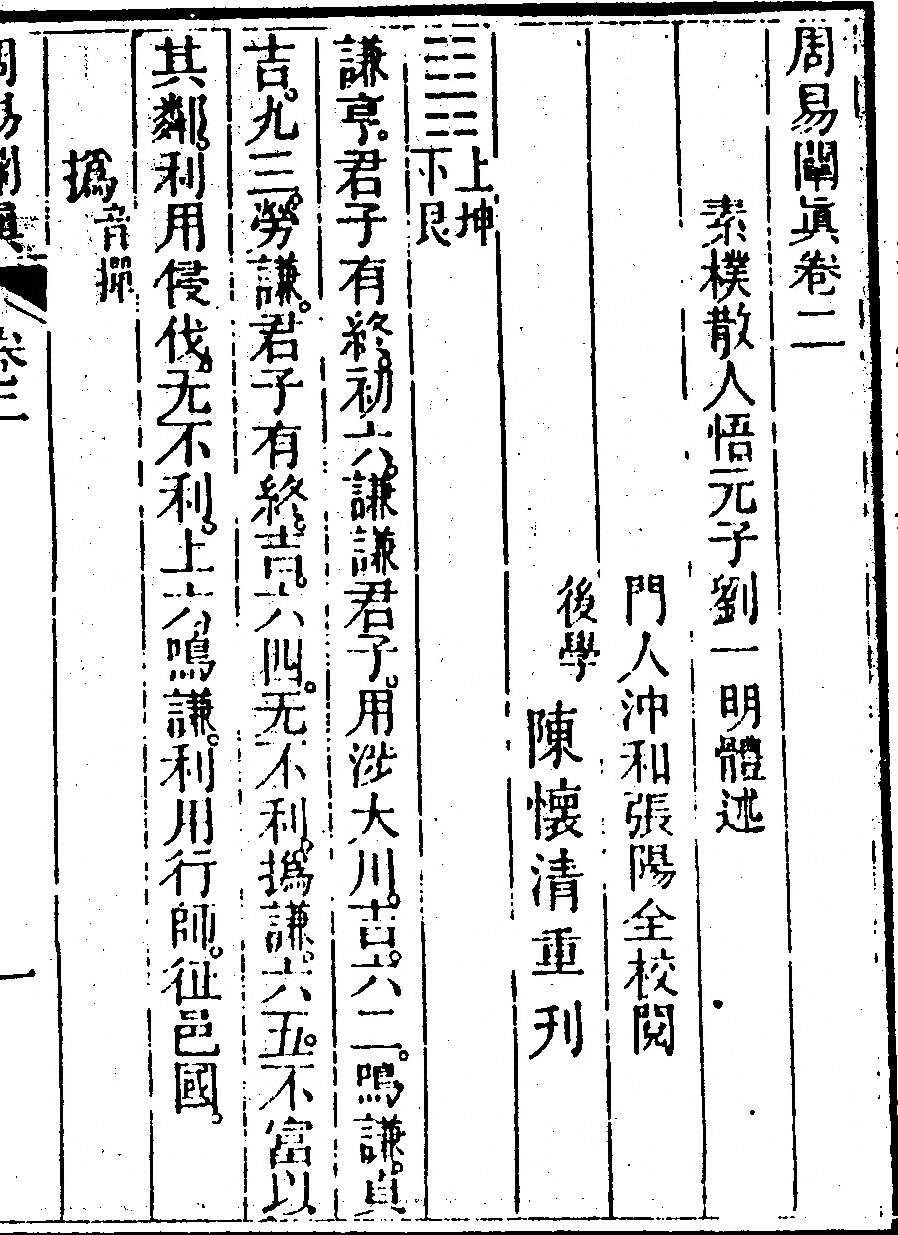 周易闡眞卷二
素樸散人悟元子劉一明體述
門人沖和張陽全校閱
後學陳懷清重刊
䷎上坤下艮
謙亨。君子有終。初六。謙謙君子。用涉大川。吉。六二。鳴謙。貞
吉。九三。勞謙。君子有終。吉。六四。无不利。撝謙。六五。不富以
其鄰。利用侵伐。无不利。上六。鳴謙。利用行師。征邑國。
撝音揮